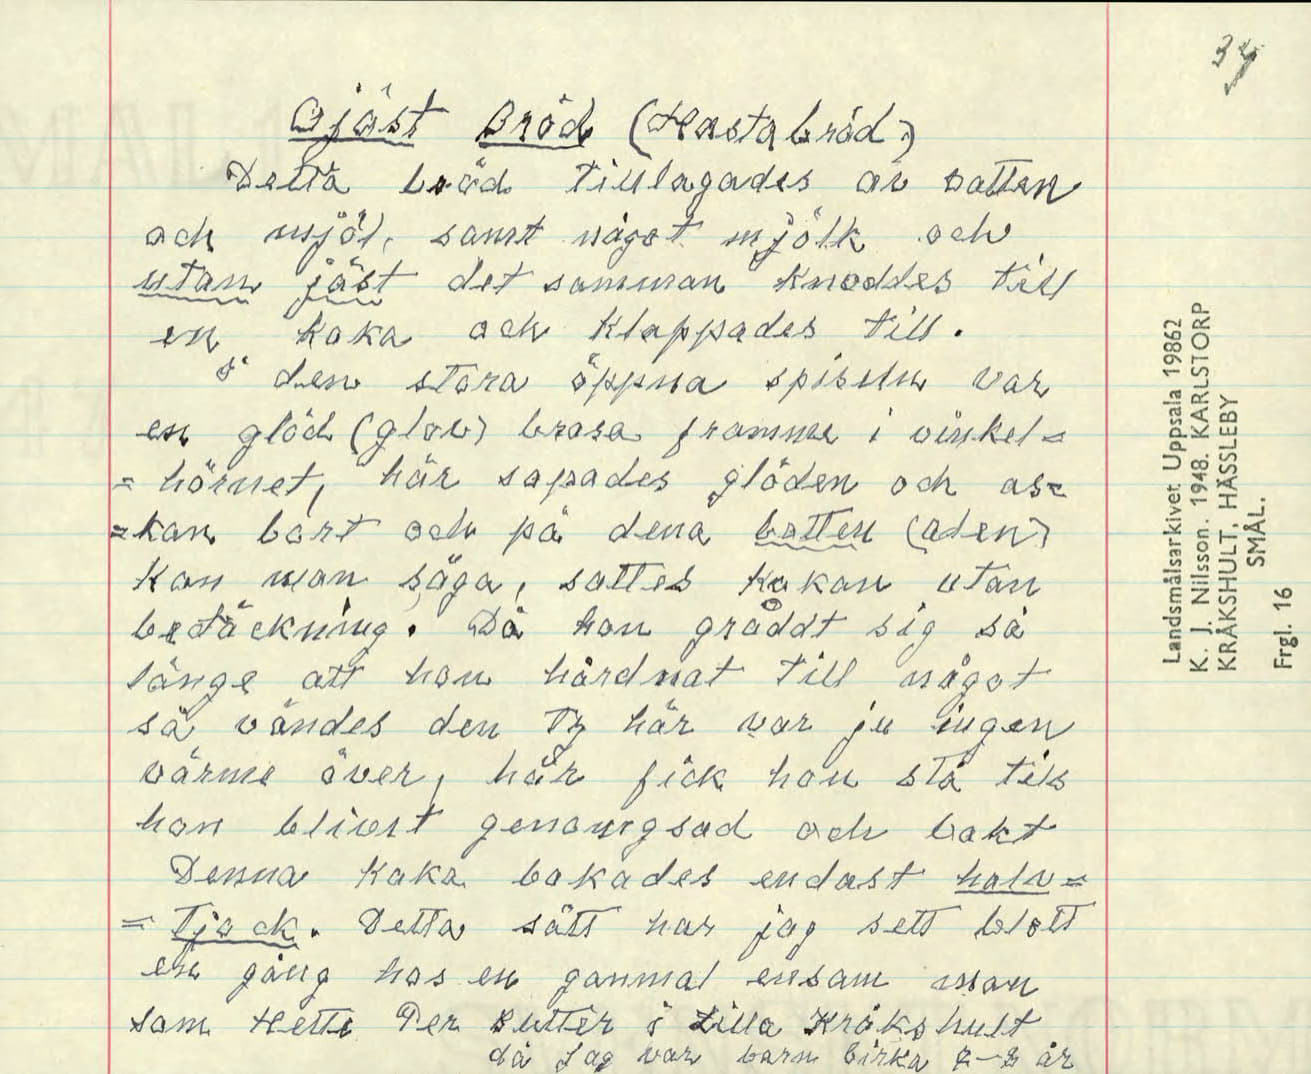 34
Ojäst Bröd (Hastabröd)
Detta bröd tillagades av vatten
och mjöl, samt något mjölk och
utan jäst det samman knoddes till
en kaka och klappades till.
I den stora öppna spiseln var
en glöd (glov) brasa framme i vinkel=
=hörnet, här sopades glöden och as=
=kan bort och på dena botten (aden)
kan man säga, sattes kakan utan
betäckning. Då hon gräddt sig så
länge att hon hårdnat till något
så vändes den Ty här var ju ingen
värme över, här fick hon stå tils
hon blivit genomgsad och bakt
Denna kaka bakades endast halv=
=tjock. Detta sätt har jag sett blott
en gång hos en gammal ensam man
som Hette Per Butter i Lilla Kråkshult
då Jag var barn Cirka 7-8 år
Landsmålsarkivet Uppsala 19862
K. J. Nilsson. 1948. KARLSTORP
KRÅKSHULT, HÄSSLEBY
SMÅL.
Frgl. 16